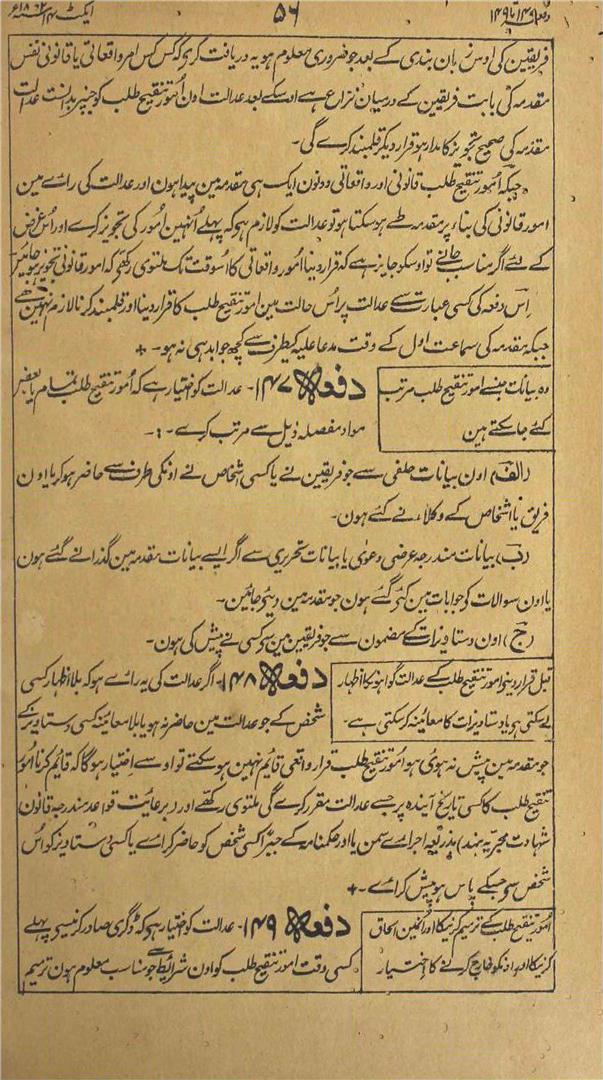 دفعہ ۱۴۶ تا ۱۴۹ ۵۶ ایکٹ ۱۴
فریقین کی اوس زبان بندی کے بعد جو ضروری معلوم ہو یہ دریافت کریگی کہ کس کس امر واقعاتی یا قانونی نفس
مقدمہ کی بابت فریقین کے درمیان نزاع ہے اوسکے بعد عدالت اون اُمور تنقیح طلب کو جنپر بدانست عدالت
مقدمہ کی صحیح تجویز کا مدار ہو قرار دیکر قلمبند کرے گی۔
جبکہ اُمور تنقیح طلب قانونی اور واقعاتی دونون ایک ہی مقدمہ مین پیدا ہون اور عدالت کی رائے مین
امور قانونی کی بناء پر مقدمہ طے ہو سکتا ہو تو عدالت کو لازم ہو کہ پہلے اُنہین اُمور کی تجویز کرے اور اُس غرض
کے لئے اگر مناسب جانے تو اوسکو جایز ہے کہ قرار دینا اُمور واقعاتی کا اُسوقت تک ملتوی رکھے کہ امور قانونی تجویز ہو جائین
اِس دفعہ کی کسی عبارت سے عدالت پر اُس حالت مین امور تنقیح طلب کا قرار دینا اور قلمبند کرنا لازم نہین ہے
جبکہ مقدمہ کی سماعت اول کے وقت مدعا علیہ کیطرف سے کچھ جوابدہی نہ ہو۔
وہ بیانات جنسے امور تنقیح طلب مرتب
کئے جا سکتے ہین
دفعہ ۱۴۷۔ عدالت کو اختیار ہے کہ اُمور تنقیح طلب تمام یا بعض
مواد مفصلہ ذیل سے مرتب کرے۔
(الف) اون بیانات حلفی سے جو فریقین نے یا کسی شخاص نے اونکی طرف سے حاضر ہو کر یا اون
فریق یا اشخاص کے وکلاء نے کئے ہون۔
(ب) بیانات مندرجہ عرضی دعوٰی یا بیانات تحریری سے اگر ایسے بیانات مقدمہ مین گذرانے گئے ہون
یا اون سوالات کی جوابات مین کئی گئے ہون جو مقدمہ مین دیئے جائین۔
(ج) اون دستاویزات کے مضمون سے جو فریقین مین سے کسی نے پیش کی ہون۔
قبل قرار دینے امور تنقیح طلب کے عدالت گواہونکا اظہار
لے سکتی ہی یا دستاویزات کا معائینہ کر سکتی ہے۔
دفعہ ۱۴۸۔ اگر عدالت کی یہ رائے ہو کہ بلا اظہار کسی
شخص کے جو عدالت مین حاضر نہ ہو یا بلا معائینہ کسی دستاویز کے
جو مقدمہ مین پیش نہ ہوی ہو اُمور تنقیح طلب قرار واقعی قائم نہین ہو سکتے تو اوسے اختیار ہوگا کہ قائم کرنا اُمور
تنقیح طلب کا کسی تاریخ آیندہ پر جسے عدالت مقرر کرے گی ملتوی رکھے اور (برعایت قواعد مندرجہ قانون
شہادت مجریہ ہند) بذریعہ اجراے سمن یا اور حکمنامہ کے جبراً کسی شخص کو حاضر کراے یا کسی دستاویز کو اُس
شخص سے جسکے پاس ہو پیش کراے۔
اُمور تنقیح طلب کے ترمیم کرنیکا اور اُنمین الحاق
کرنیکا اور اونکو خارج کرنے کا اختیار
دفعہ ۱۴۹۔ عدالت کو اختیار ہو کہ ڈگری صادر کرنیسے پہلے
کسی وقت امور تنقیح طلب کو اون شرائط سے جو مناسب معلوم ہون ترمیم